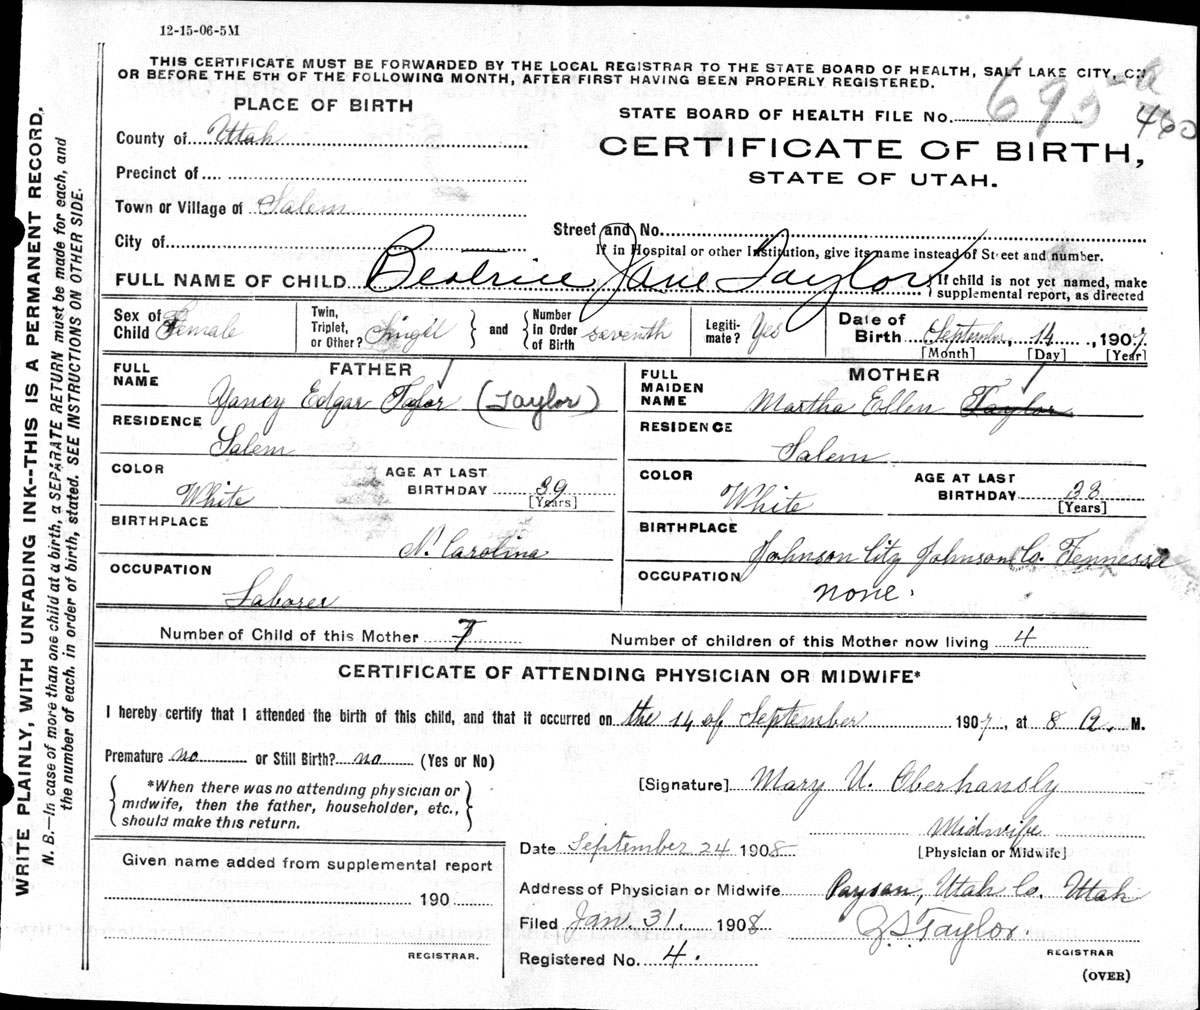 12-15-06-5M
THIS CERTIFICATE MUST BE FORWARDED BY THE LOCAL REGISTRAR TO THE STATE BOARD OF HEALTH, SALT LAKE CITY, ON
OR BEFORE THE 5TH OF THE FOLLOWING MONTH, AFTER FIRST HAVING BEEN PROPERLY REGISTERED.
WRITE PLAINLY, WITH UNFADING INK--THIS IS A PERMANENT RECORD.
N. B.—In case of more than one child at a birth, a SEPARATE RETURN must be made for each, and
the number of each, in order of birth, stated. SEE INSTRUCTIONS ON OTHER SIDE.
PLACE OF BIRTH
County of Utah
Precinct of
Town or Village of Salem
City of
STATE BOARD OF HEALTH FILE No. 695-a
460
CERTIFICATE OF BIRTH,
STATE OF UTAH.
Street and No.
If in Hospital or other Institution, give its name instead of Street and number.
FULL NAME OF CHILD Beatrice Jane Taylor { If child is not yet named, make
supplemental report, as directed
Sex of Child Female
Twin, Triplet, or Other? Singil } and { Number in Order of Birth seventh
Legiti-mate? Yes
Date of Birth September, 14, 1907.
[Month] [Day] [Year]
FATHER
FULL NAME Yancy Edgar Taylor (Taylor)
RESIDENCE Salem
COLOR White
AGE AT LAST BIRTHDAY 39
[Years]
BIRTHPLACE N. Carolina
OCCUPATION Laborer
MOTHER
FULL MAIDEN NAME Martha Ellen Taylor
RESIDENCE Salem
COLOR White
AGE AT LAST BIRTHDAY 38
[Years]
BIRTHPLACE Johnson City Johnson Co. Tennessee
OCCUPATION none.
Number of Child of this Mother 7 Number of children of this Mother now living 4
CERTIFICATE OF ATTENDING PHYSICIAN OR MIDWIFE*
I hereby certify that I attended the birth of this child, and that it occurred on the 14 of September 1907, at 8 a. M.
Premature no or Still Birth? no (Yes or No)
{ *When there was no attending physician or
midwife, then the father, householder, etc.,
should make this return. }
[Signature] Mary U. Oberhansly
Midwife
[Physician or Midwife]
Given name added from supplemental report
190
REGISTRAR.
Date September 24 1908
Address of Physician or Midwife Payson, Utah Co. Utah
Filed Jan. 31. 1908
Registered No. 4.
Taylor
REGISTRAR
(OVER)